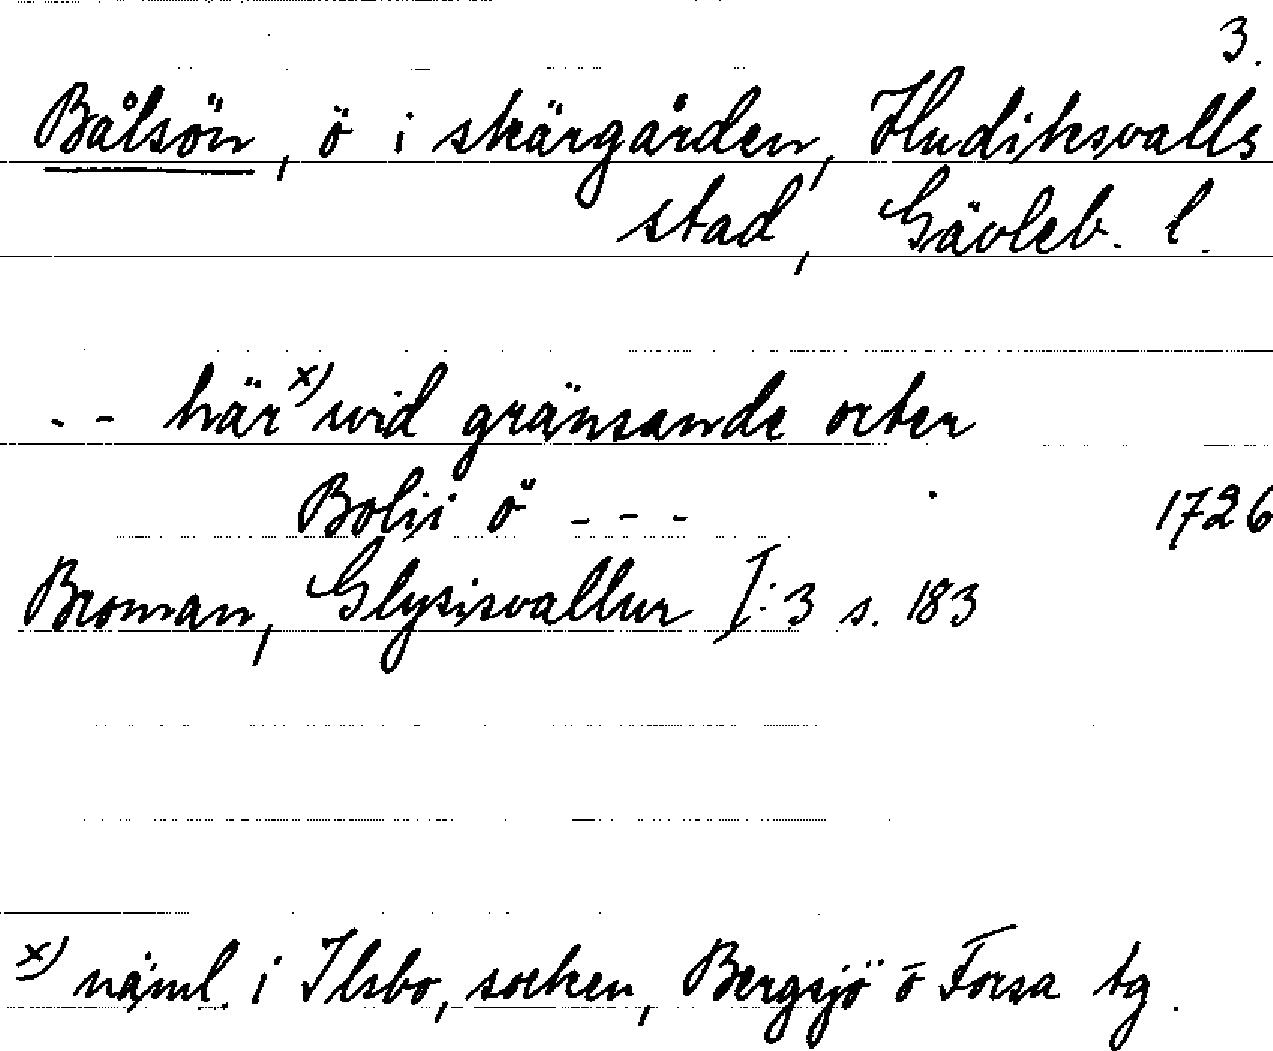 3.
Bålsön, ö i skärgården, Hudiksvalls
stad, Gävleb. l.
- - här x) wid gränsande orter
Bolji ö - - - 1726
Broman, Glysisvallur I:3 s. 183
x) näml. i Ilsbo, socken, Bergsjö o Forsa tg.